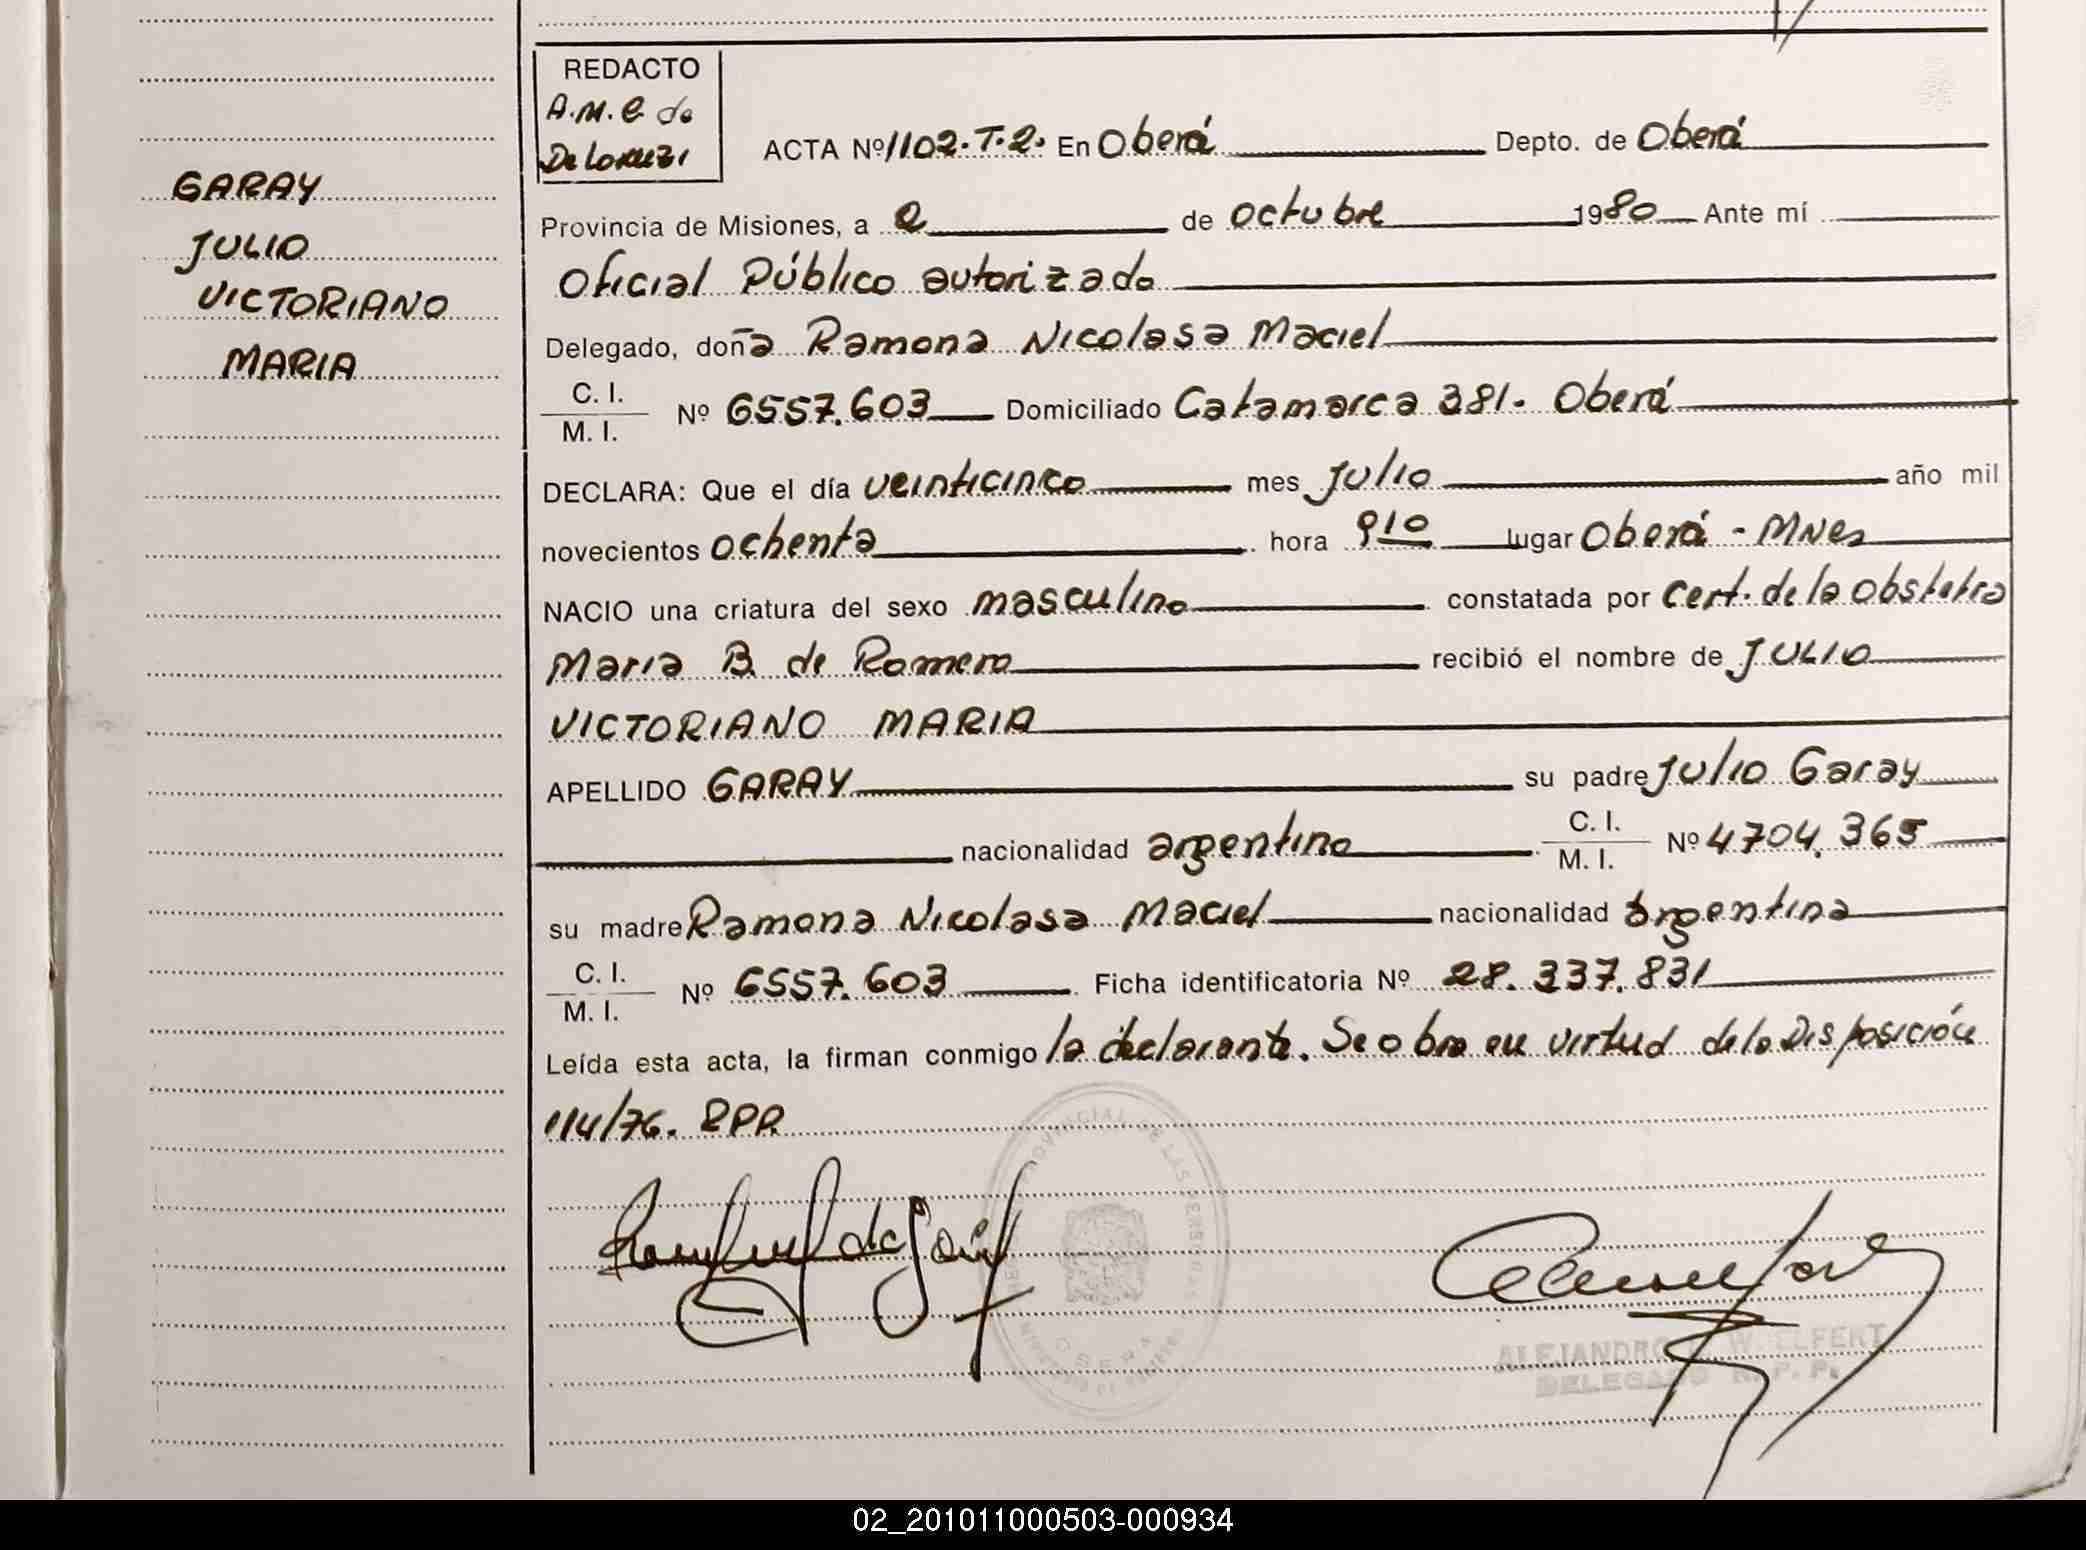 GARAY
JULIO
VICTORIANO
MARIA
REDACTO
A.M.C. de
De Lorenzi
ACTA Nº 1102. T. 2. En Oberá Depto. de Oberá
Provincia de Misiones, a 2 de octubre 1980 Ante mí
Oficial Público autorizado
Delegado, doña Ramona Nicolasa Maciel
C. I.
M. I. Nº 6557.603 Domiciliado Catamarca 381- Oberá
DECLARA: Que el día veinticinco mes Julio año mil
novecientos ochenta hora 910 lugar Oberá - Mnes
NACIO una criatura del sexo masculino constatada por Cert. de la Obstetra
Maria B. de Romero recibió el nombre de JULIO
VICTORIANO MARIA
APELLIDO GARAY su padre Julio Garay
nacionalidad argentino C. I.
M. I. Nº 4704.365
su madre Ramona Nicolasa Maciel nacionalidad argentina
C. I.
M. I. Nº 6557.603 Ficha identificatoria Nº 28.337.831
Leída esta acta, la firman conmigo la declarante. Se obra en virtud de la Disposición
114/76. RPP.
PROVINCIAL DE LAS PERSONAS
OBERA
ALEJANDRO WOELFERT
DELEGADO R. P. P.
02_201011000503-000934